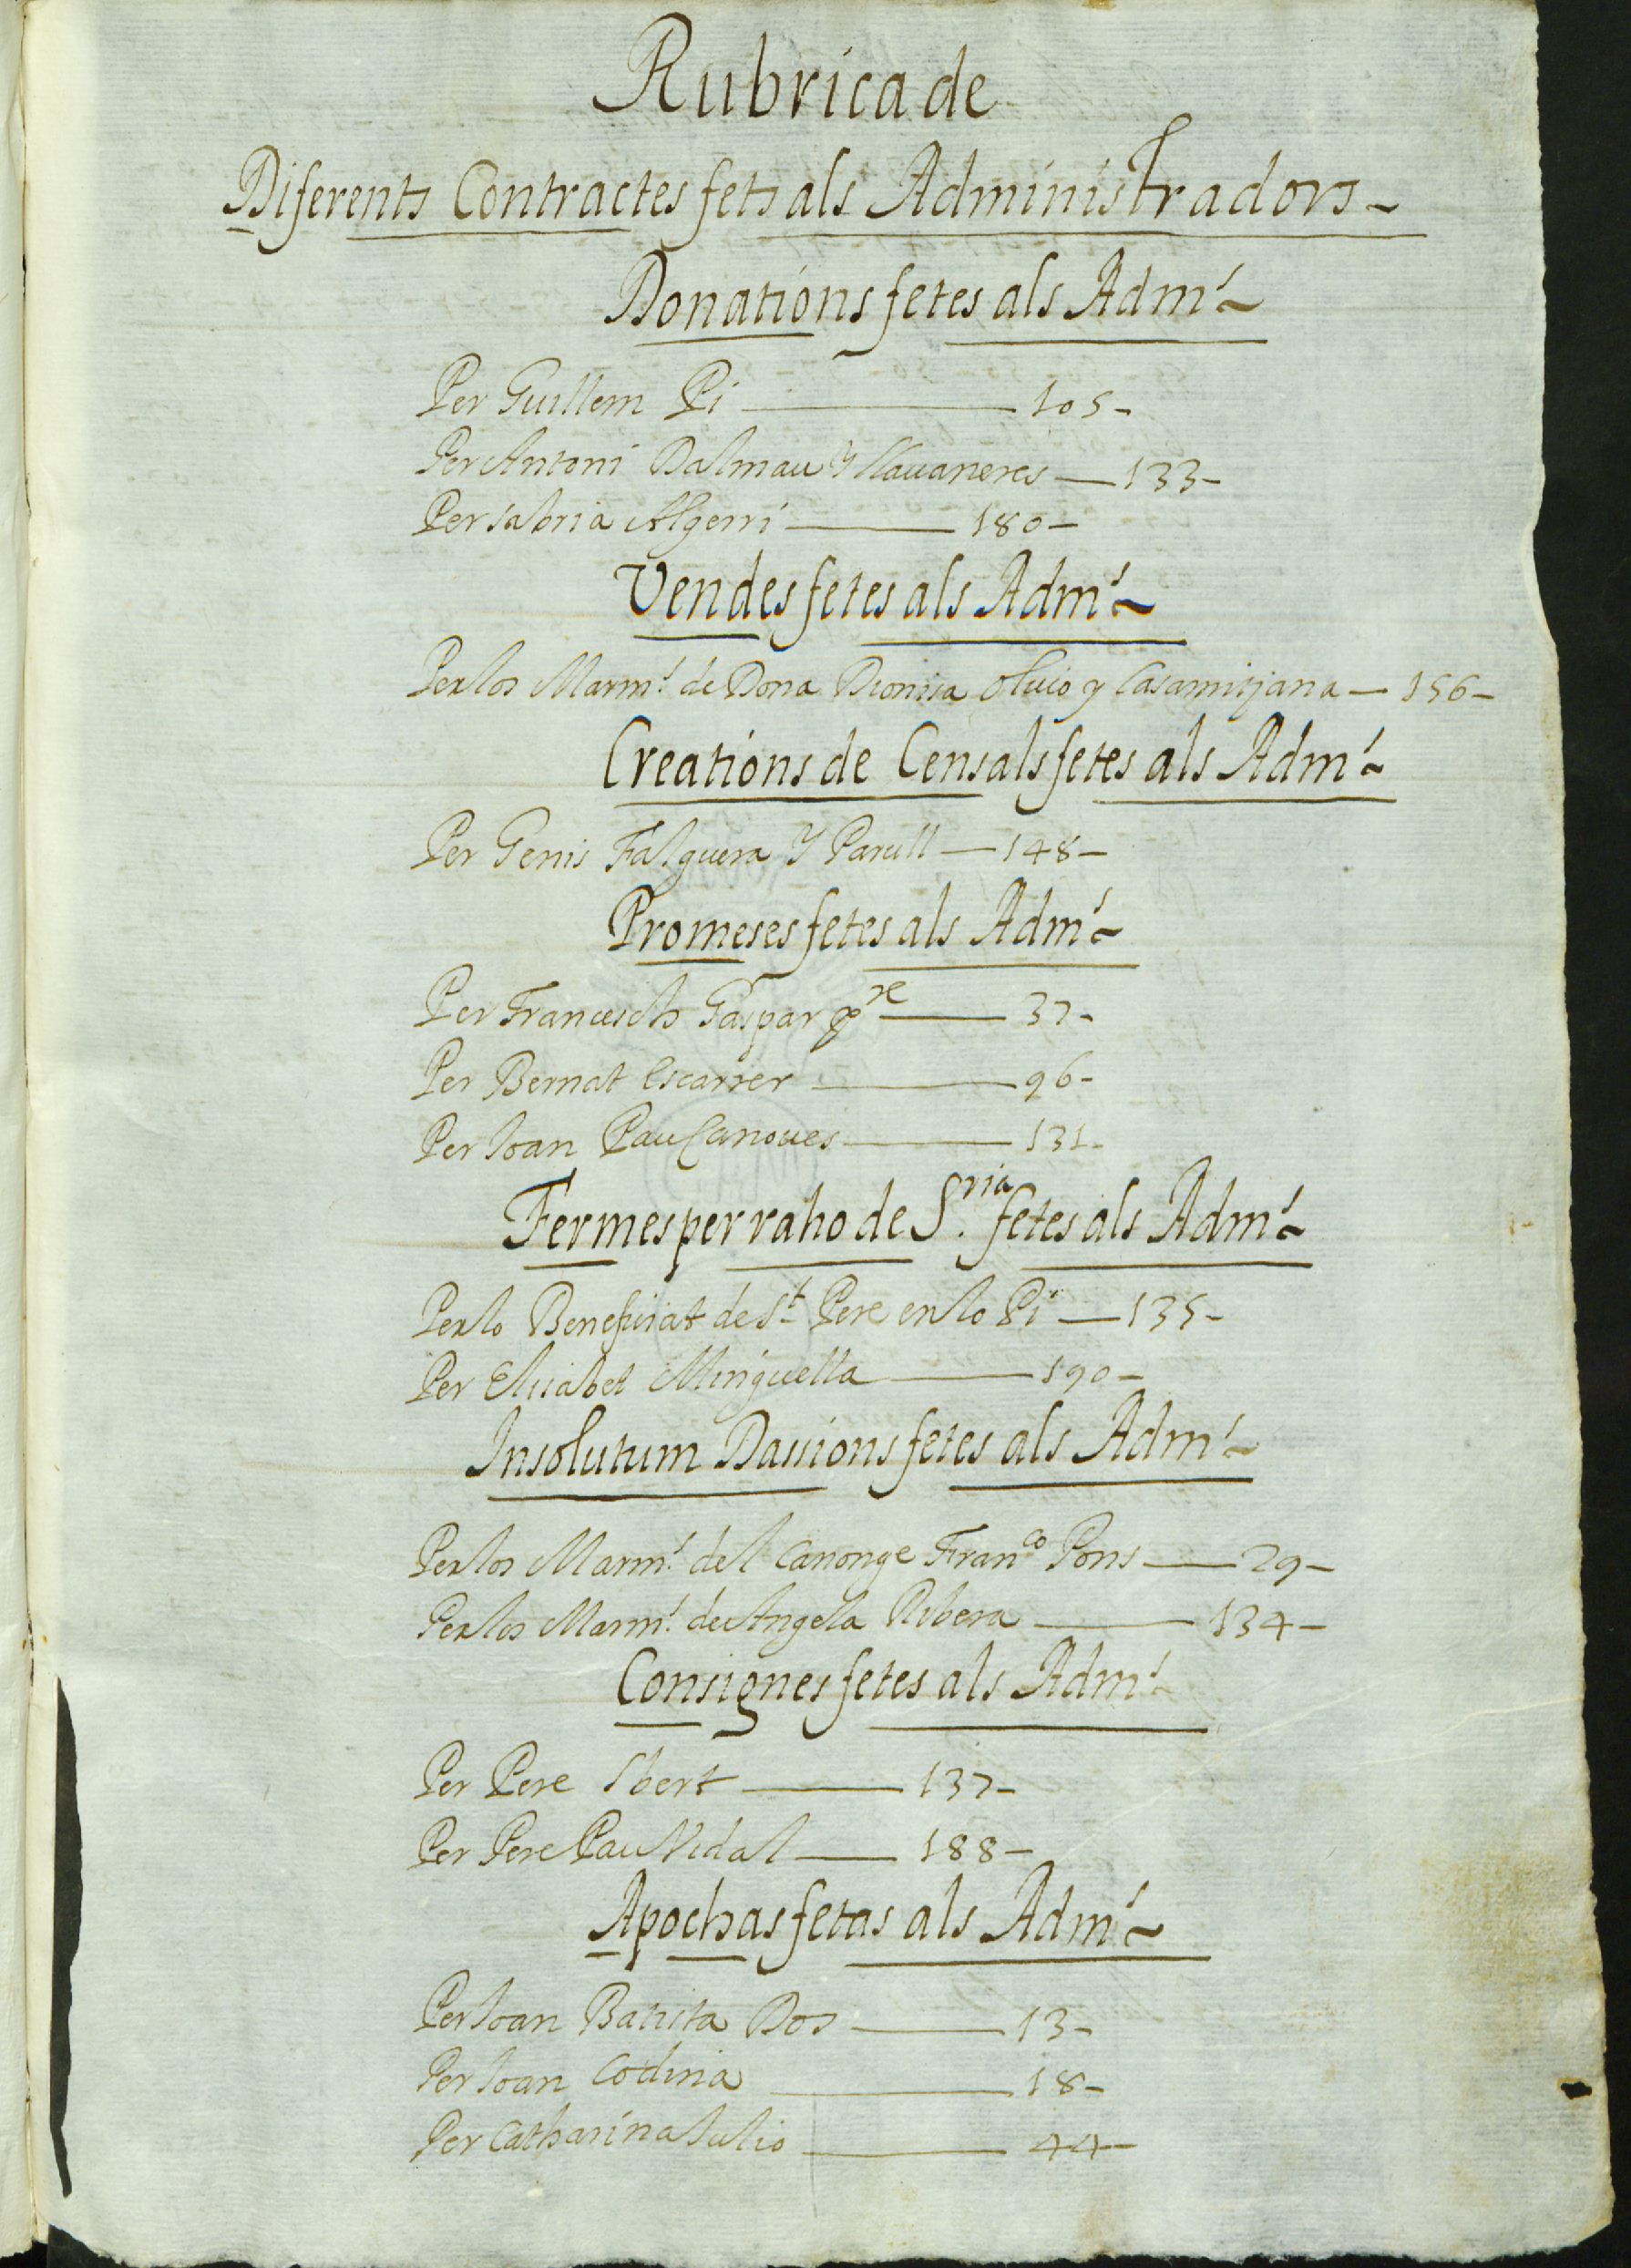 Rubrica de
Diferents Contractes fets als Administradors~
Donations fetes als Adm.ˢ~
Per Guillem Pi — 105-
Per Antoni Dalmau y llauaneres — 133-
Per Sabria Algerri — 180-
Vendes fetes als Adm.ˢ~
Per los Marm.ˢ de Dona Dionisa Oluio y Casamitjana — 156-
Creations de Censals fetes als Adm.ˢ~
Per Genis Falguera y Parull — 148-
Promeses fetes als Adm.ˢ~
Per Francesch Gaspar pʳᵉ — 37-
Per Bernat Escarrer — 96-
Per Ioan Pau Canoues — 131-
Fermes per raho de S.ʳⁱᵃ fetes als Adm.ˢ~
Per lo Benefisiat de Sᵗ Pere en lo Pi — 135-
Per Elisabet Minguella — 190-
Insolutum Dassions fetes als Adm.ˢ~
Per los Marm.ˢ del Canonge Franᶜᵒ Pons — 29-
Per los Marm.ˢ de Angela Ribera — 134-
Consignes fetes als Adm.ˢ
Per Pere Sbert — 137-
Per Pere Pau Vidal — 188-
Apochas fetas als Adm.ˢ~
Per Ioan Batista Dos — 13-
Per Ioan Codina — 18-
Per Catharina Iulio — 44-